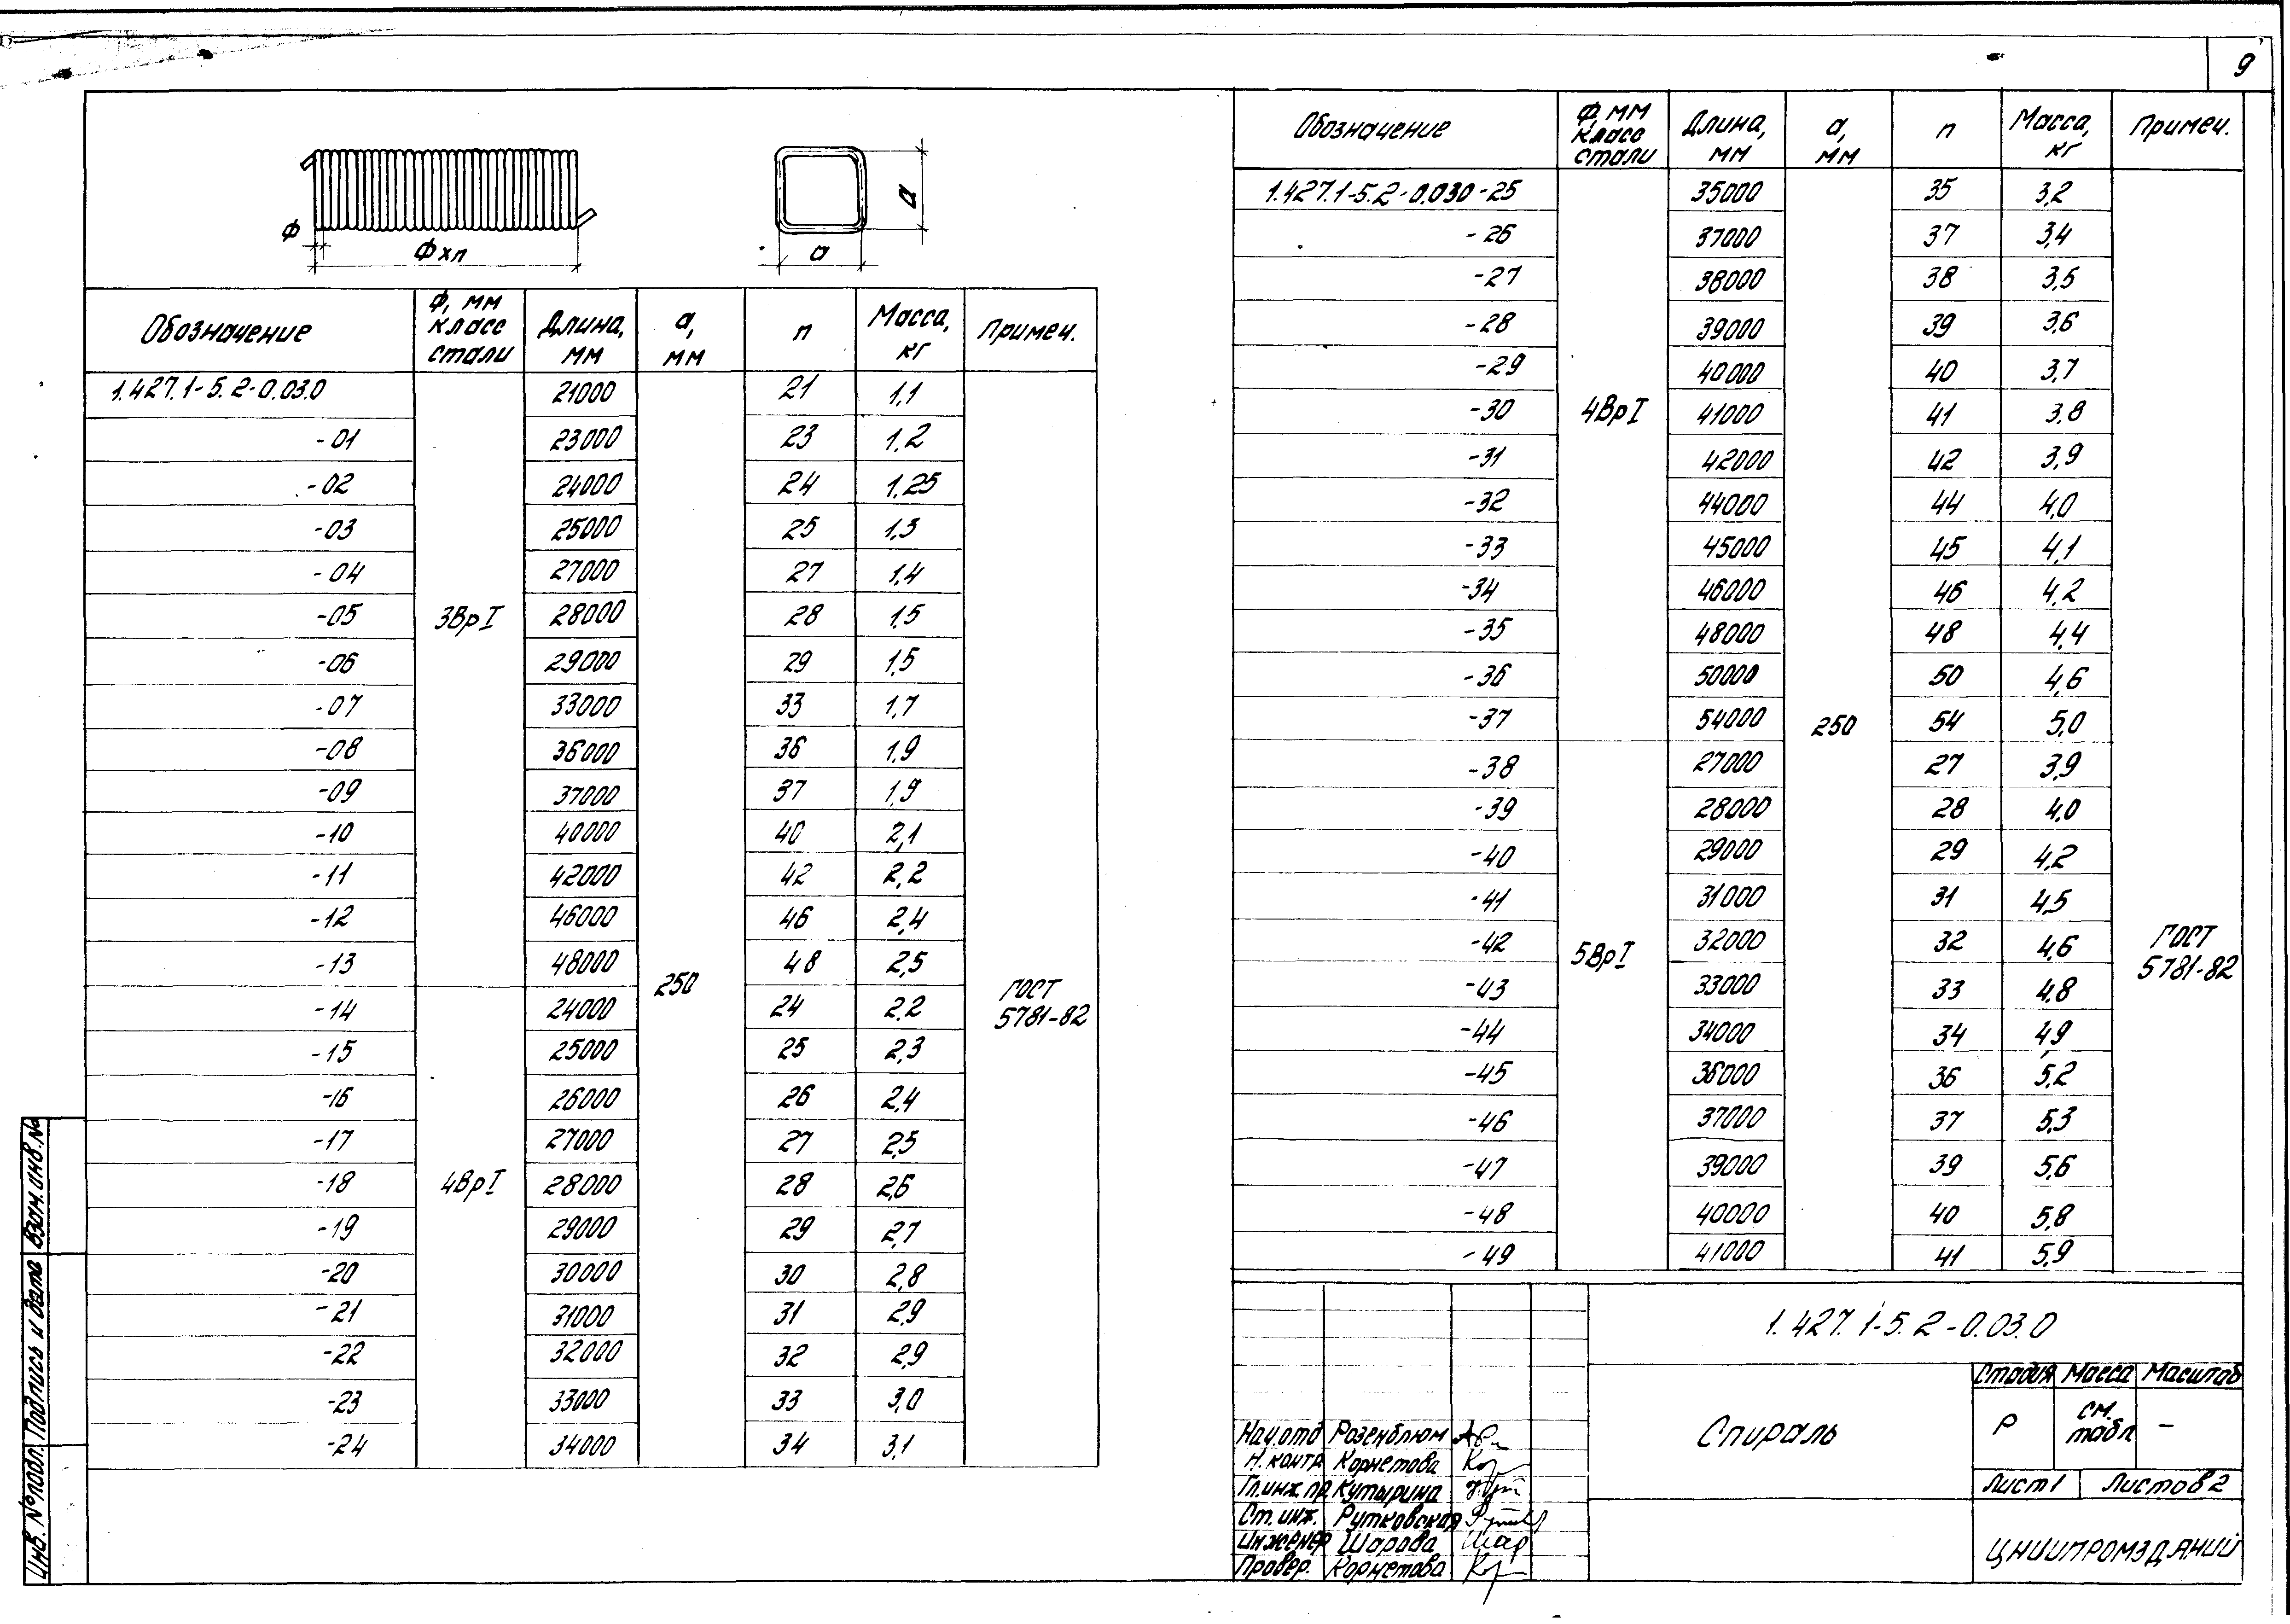 9
ф
фхп
а
а
Обозначение | Ф, мм класс стали | Длина, мм | а, мм | п | Масса, кг | Примеч.
1.427.1-5.2-0.03.0 | 3ВрI | 21000 | 250 | 21 | 1,1 | ГОСТ 5781-82
-01 | 23000 | 23 | 1,2
-02 | 24000 | 24 | 1,25
-03 | 25000 | 25 | 1,3
-04 | 27000 | 27 | 1,4
-05 | 28000 | 28 | 1,5
-06 | 29000 | 29 | 1,5
-07 | 33000 | 33 | 1,7
-08 | 36000 | 36 | 1,9
-09 | 37000 | 37 | 1,9
-10 | 40000 | 40 | 2,1
-11 | 42000 | 42 | 2,2
-12 | 46000 | 46 | 2,4
-13 | 48000 | 48 | 2,5
-14 | 4ВрI | 24000 | 24 | 2,2
-15 | 25000 | 25 | 2,3
-16 | 26000 | 26 | 2,4
-17 | 27000 | 27 | 2,5
-18 | 28000 | 28 | 2,6
-19 | 29000 | 29 | 2,7
-20 | 30000 | 30 | 2,8
-21 | 31000 | 31 | 2,9
-22 | 32000 | 32 | 2,9
-23 | 33000 | 33 | 3,0
-24 | 34000 | 34 | 3,1
Обозначение | Ф, мм класс стали | Длина, мм | а, мм | п | Масса, кг | Примеч.
1.427.1-5.2-0.030-25 | 4ВрI | 35000 | 250 | 35 | 3,2 | ГОСТ 5781-82
-26 | 37000 | 37 | 3,4
-27 | 38000 | 38 | 3,5
-28 | 39000 | 39 | 3,6
-29 | 40000 | 40 | 3,7
-30 | 41000 | 41 | 3,8
-31 | 42000 | 42 | 3,9
-32 | 44000 | 44 | 4,0
-33 | 45000 | 45 | 4,1
-34 | 46000 | 46 | 4,2
-35 | 48000 | 48 | 4,4
-36 | 50000 | 50 | 4,6
-37 | 54000 | 54 | 5,0
-38 | 5ВрI | 27000 | 27 | 3,9
-39 | 28000 | 28 | 4,0
-40 | 29000 | 29 | 4,2
-41 | 31000 | 31 | 4,5
-42 | 32000 | 32 | 4,6
-43 | 33000 | 33 | 4,8
-44 | 34000 | 34 | 4,9
-45 | 36000 | 36 | 5,2
-46 | 37000 | 37 | 5,3
-47 | 39000 | 39 | 5,6
-48 | 40000 | 40 | 5,8
-49 | 41000 | 41 | 5,9
1.427.1-5.2-0.03.0
Спираль
Стадия | Масса | Масштаб
Р | см. табл | –
Лист 1 | Листов 2
ЦНИИПРОМЗДАНИЙ
Нач.отд Розенблюм
Н.контр Корнетова
Гл.инж.пр Кутырина
Ст.инж. Рутковская
Инженер Шарова
Провер. Корнетова
Инв.№подл. Подпись и дата Взам.инв.№